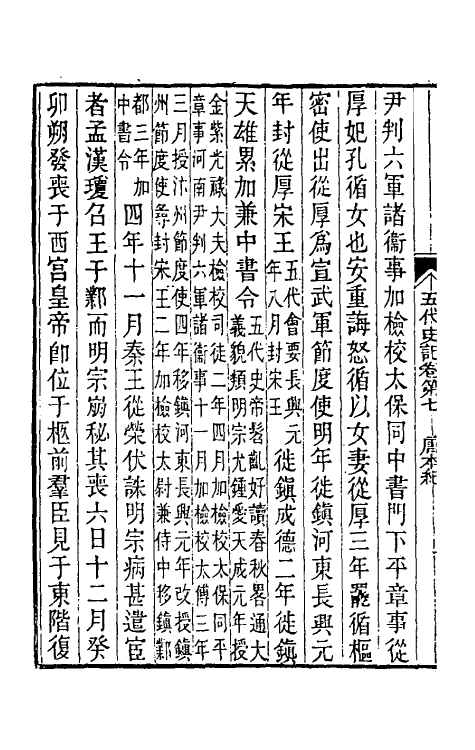 五代史記卷第七 唐本紀
尹判六軍諸衞事加檢校太保同中書門下平章事從
厚妃孔循女也安重誨怒循以女妻從厚三年罷循樞
密使出從厚爲宣武軍節度使明年徙鎭河東長興元
年封從厚宋王
五代會要長興元
年八月封宋王
徙鎭成德二年徙鎭
天雄累加兼中書令
五代史帝髫齔好讀春秋畧通大
義貌類明宗尤鍾愛天成元年授
金紫光祿大夫檢校司徒二年四月加檢校太保同平
章事河南尹判六軍諸衞事十一月加檢校太傅三年
三月授汴州節度使四年移鎭河東長興元年改授鎭
州節度使尋封宋王二年加檢校太尉兼侍中移鎭鄴
都三年加
中書令
四年十一月秦王從榮伏誅明宗病甚遣宦
者孟漢瓊召王于鄴而明宗崩秘其喪六日十二月癸
卯朔發喪于西宮皇帝卽位于柩前羣臣見于東階復